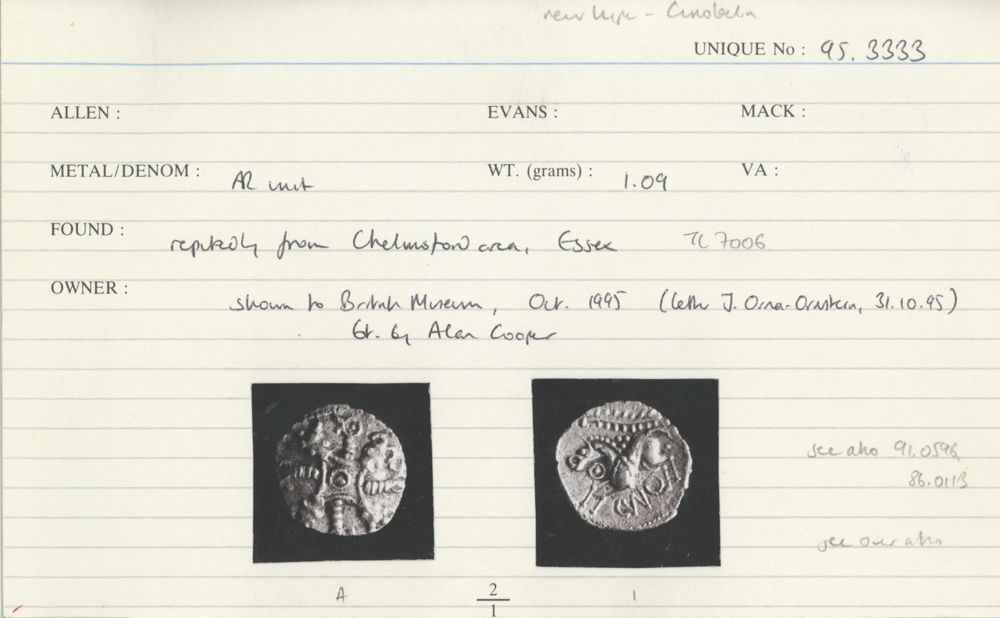 new type - Cunobelin
UNIQUE No : 95. 3333
ALLEN : EVANS : MACK :
METAL/DENOM : AR unit WT. (grams) : 1.09 VA :
FOUND : reputedly from Chelmsford area, Essex TL 7006
OWNER :
shown to British Museum, Oct. 1995 (letter J. Orna-Ornstein, 31.10.95)
bt. by Alan Cooper
CVNO
see also 91.0596,
86.0113
see over also
A 2/1 1